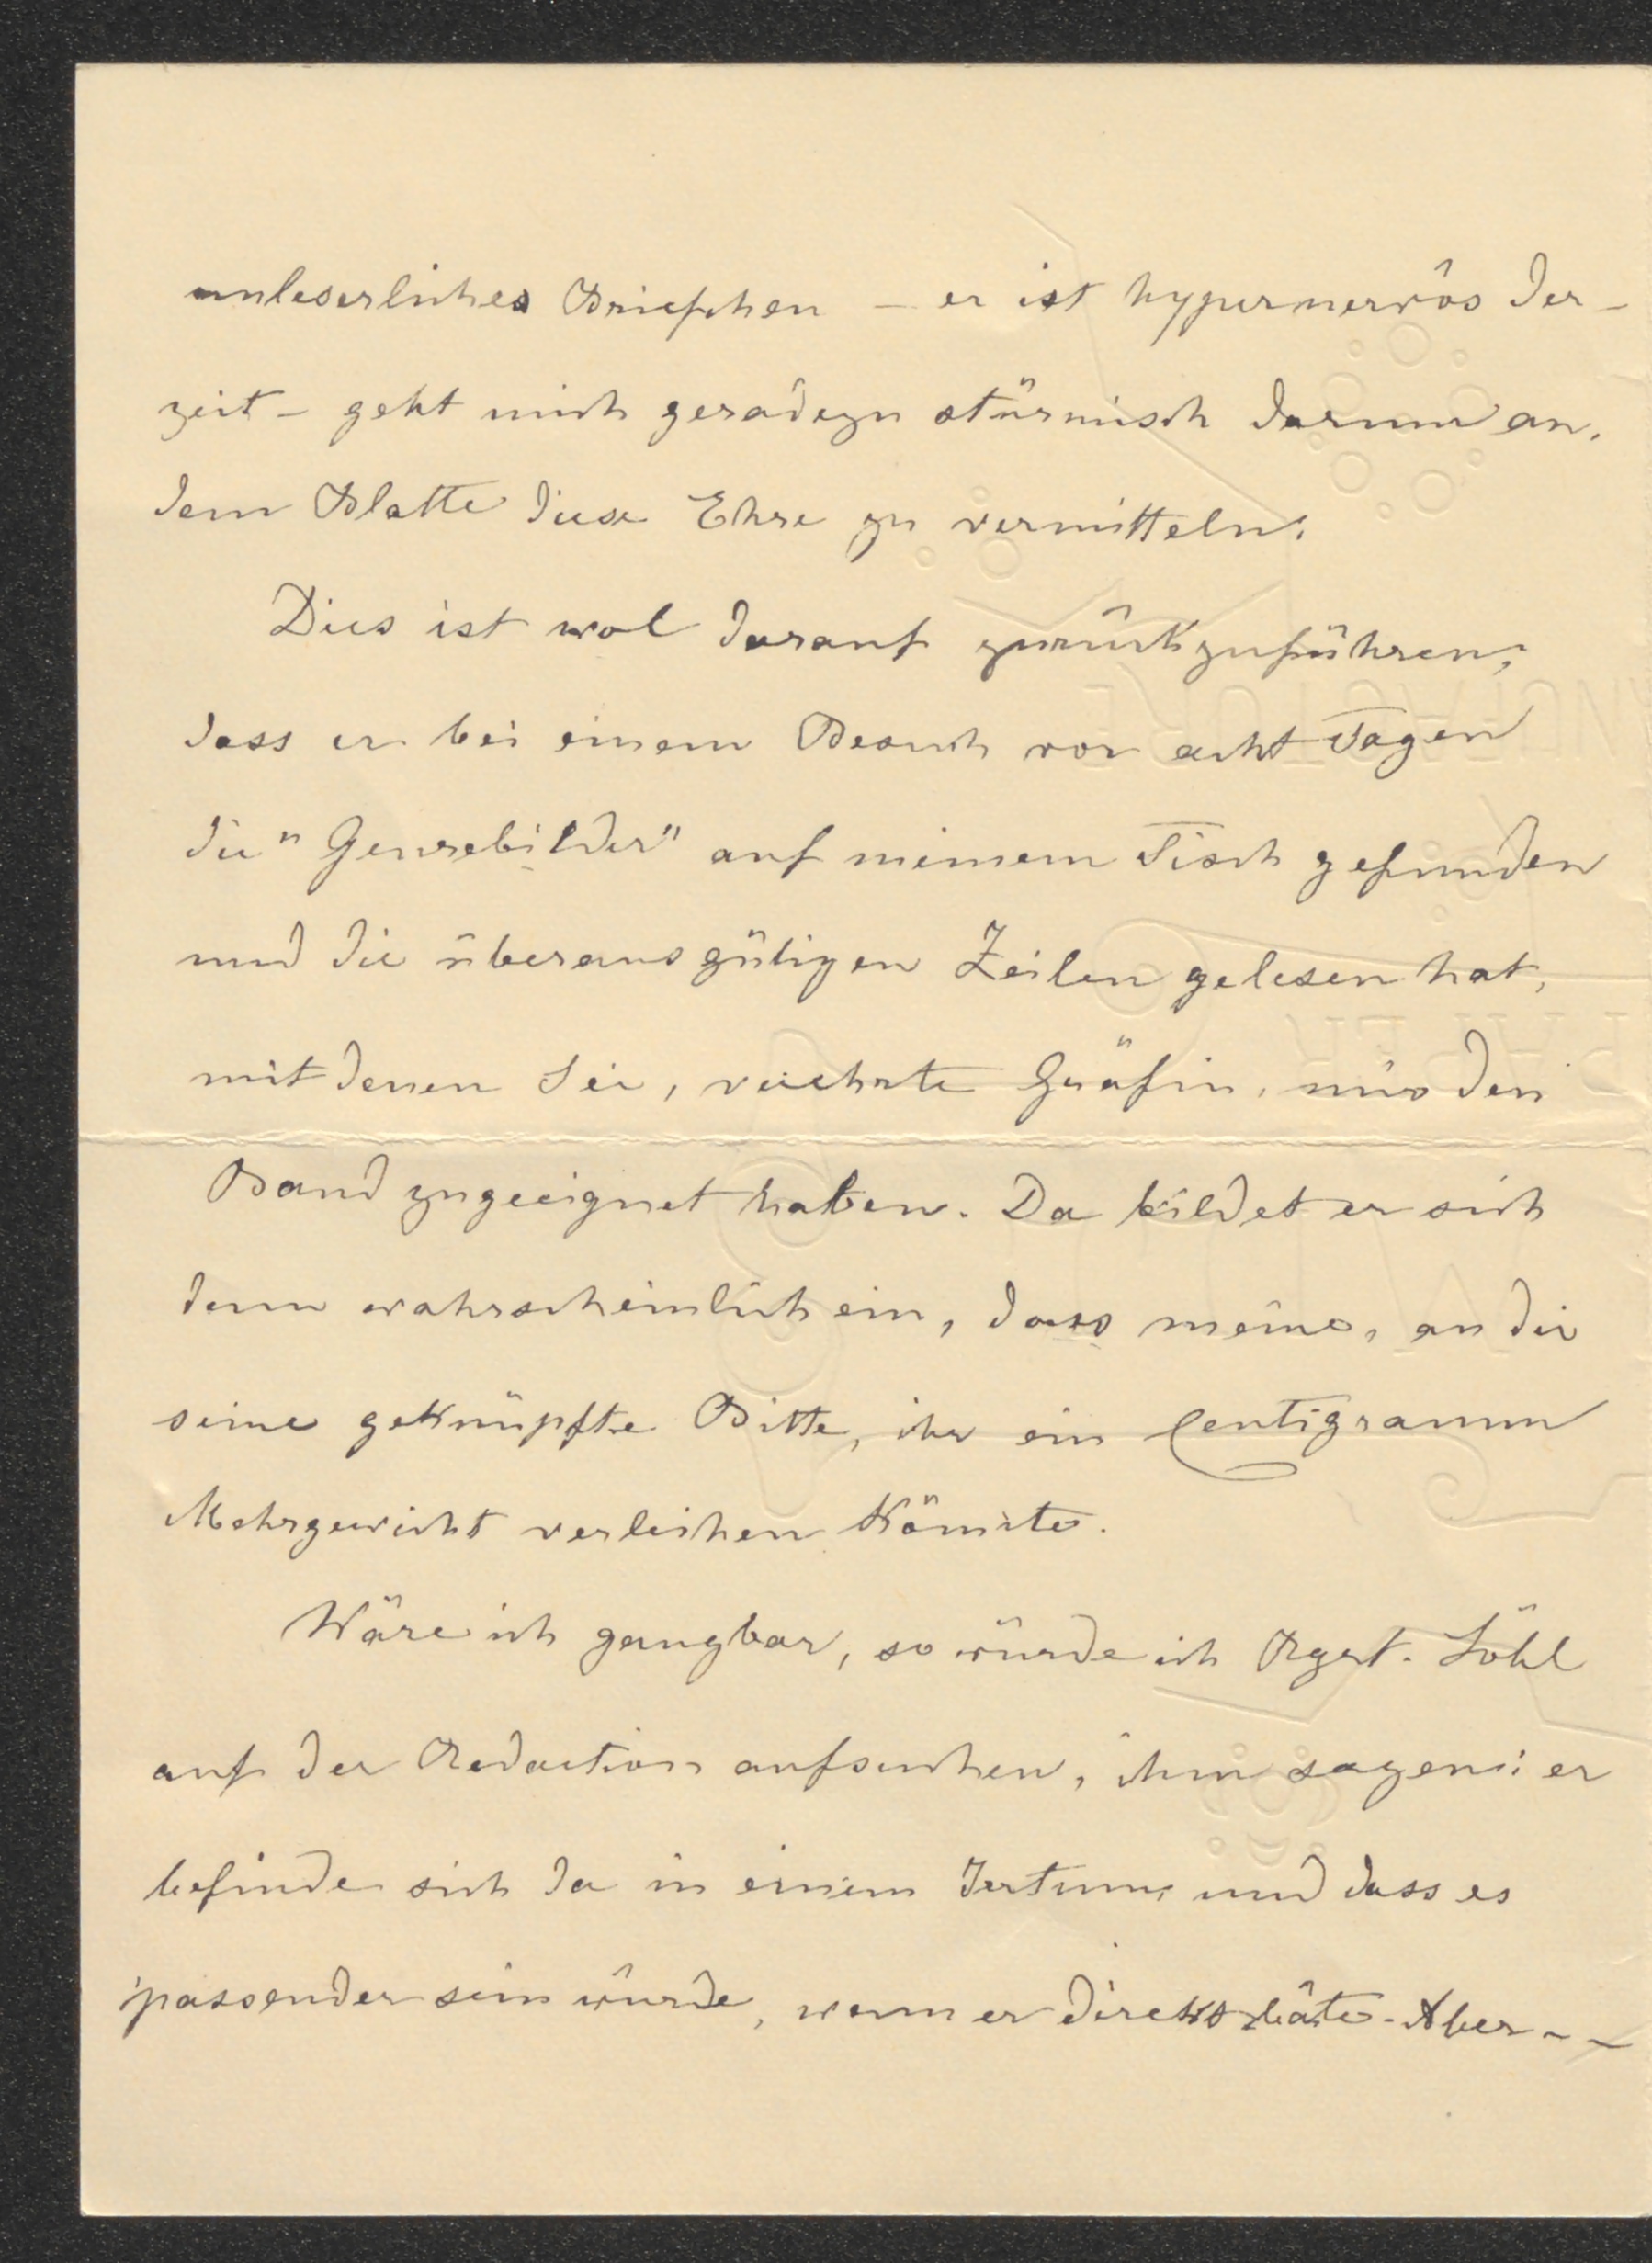 unleserliches Briefchen – er ist hypernervös der-
zeit – geht mich geradezu stürmisch darum an,
dem Blatte diese Ehre zu vermitteln.
Dies ist wol darauf zurückzuführen,
dass er bei einem Besuch vor acht Tagen
die "Genrebilder" auf meinem Tisch gefunden
und die überausgütigen Zeilen gelesen hat,
mit denen Sie, verehrte Gräfin, mir den
Band zugeeignet haben. Da bildet er sich
denn wahrscheinlich ein, dass meine, an die
seine geknüpfte Bitte, ihr ein Centigramm
Mehrgewicht verleihen könnte.
Wäre ich gangbar, so würde ich Löhl
auf der Redaction aufsuchen, ihm sagen: er
befinde sich da in einem Irrtum und dass es
passender sein würde, wenn er direkt bäte. Aber – –